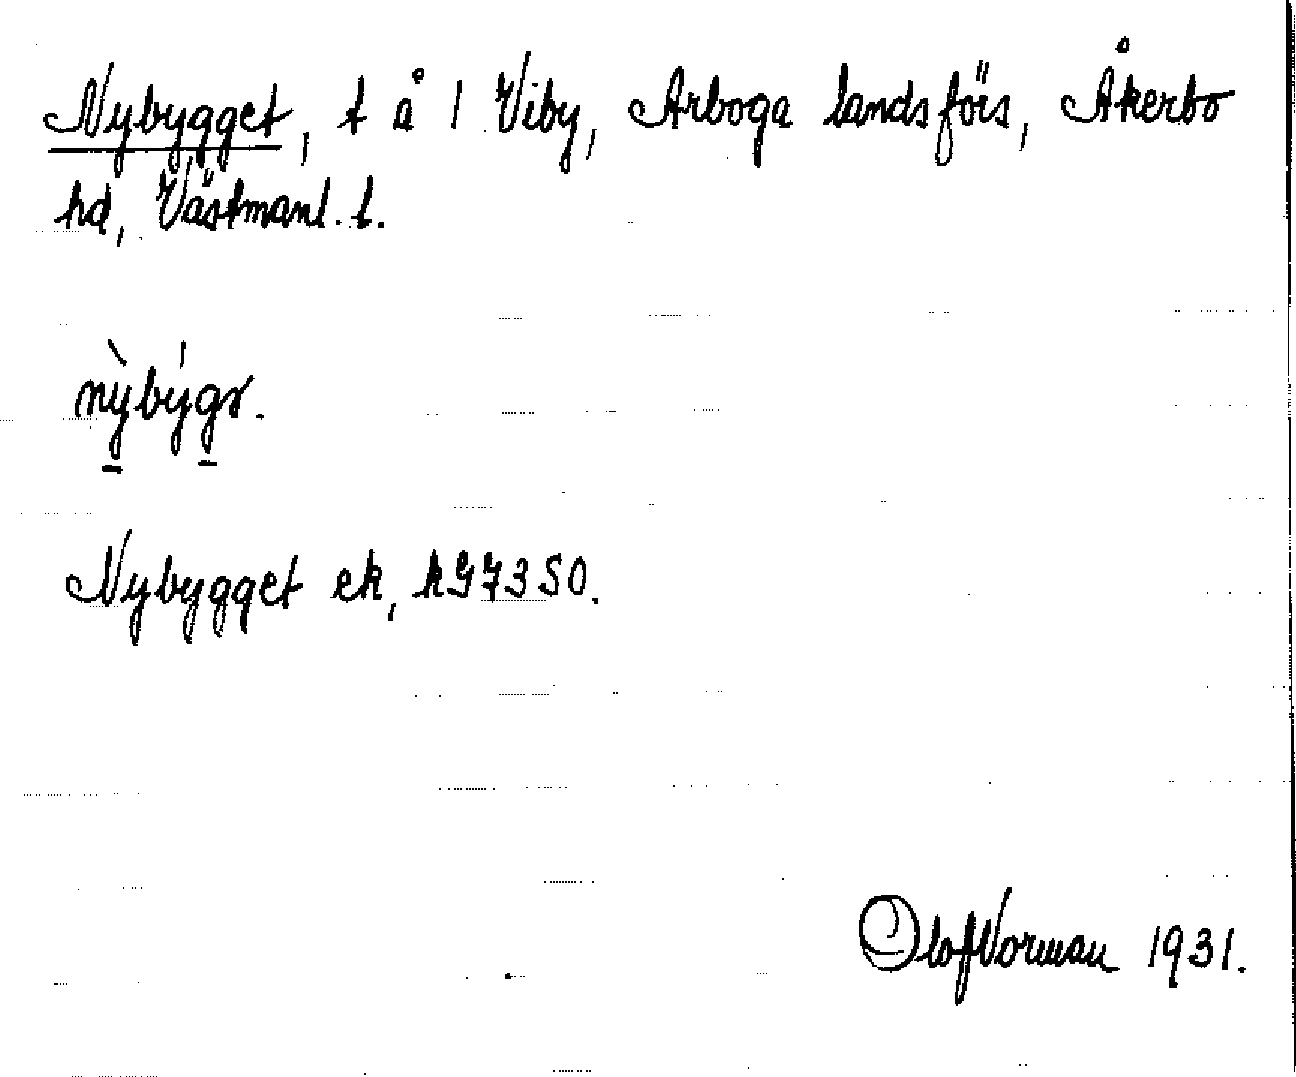 Nybygget, t å 1 Viby, Arboga landsförs, Åkerbo
hd, Västmanl. l.
nỳbýgɤ.
Nybygget ek, kG7350.
Olof Norman 1931.